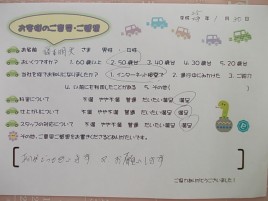 平成 25年 1月 30日
お客様のご意見・ご感想
お名前 さま 男性・女性
おいくつですか？ 1. 60歳以上 2. 50歳代 3. 40歳代 4. 30歳代 5. 20歳代
当社を何でお知りになりましたか？ 1. インターネット検索で 2. 3. ご紹介
4. 以前にも利用したことがある 5. その他
料金について 不満 やや不満 普通 だいたい満足 満足
仕上がりについて 不満 やや不満 普通 だいたい満足 満足
スタッフの対応について 不満 やや不満 普通 だいたい満足 満足
その他、ご意見ご感想をお書きくださるとありがたいです。
お願いします
ご協力ありがとうございました！